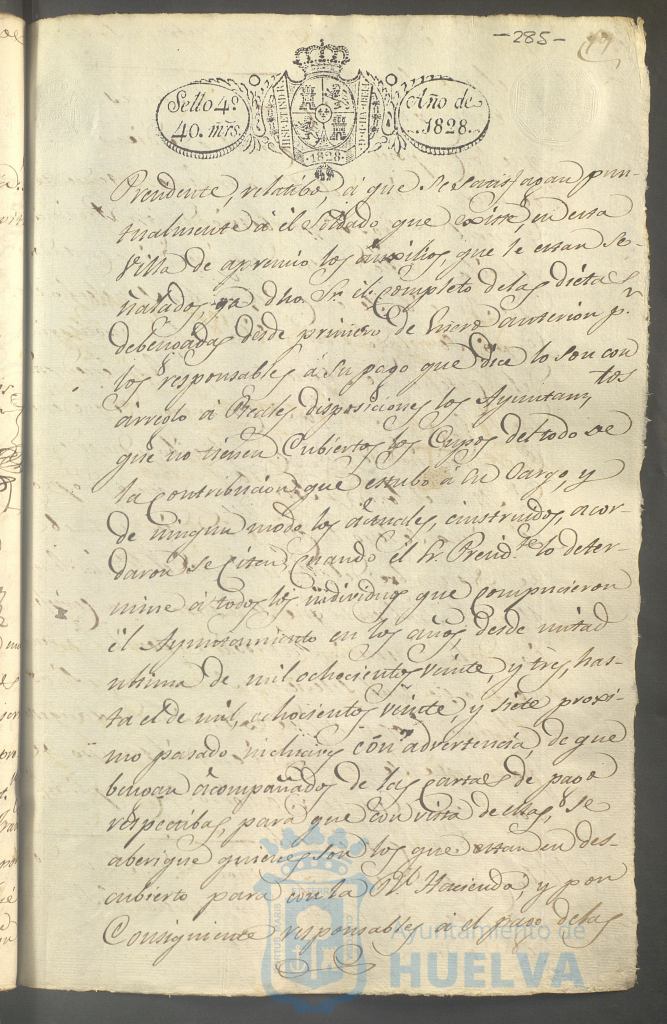 -285-
Sello 4º
40. mrs.
HISP. ET IND. R.
Año de
1828.
·1828·
Prendente, relatibo, á que se satisfagan pun-
tualmente á el Soldado que existe, en esta
Villa de apremio los auxilios, que le estan se-
ñalados, ya dho. Sr. el completo de las dietas
debengadas desde primero de Enero anterior pr.
los responsables á su pago que dice lo son con
arreglo á Reales disposiciones los Ayuntamtos
que no tienen Cubiertos los Cupos del todo de
la contribucion que estubo á su Cargo, y
de ningun modo los actuales, instruidos, acor-
daron se citen, quando el Sr. Presidte. lo deter-
mine á todos los individuos que compucieron
el Ayuntamiento en los años, desde mitad
ultima de mil ochocientos veinte, y tres, has-
ta el de mil, ochocientos veinte, y siete proxi-
mo pasado inclusibes con advertencia de que
bengan acompañados de las cartas de pago
respectibas, para que con vista de ellas, se
aberigue quienes son los que estan en des-
cubierto para con la Rl. Hacienda y por
Consiguiente responsables á el pago de las
Ayuntamiento de
HUELVA